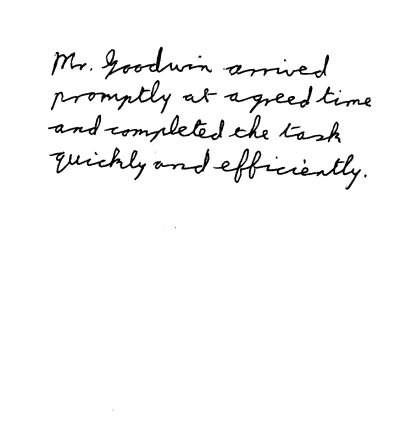 Mr. Goodwin arrived
promptly at agreed time
and completed the task
quickly and efficiently.